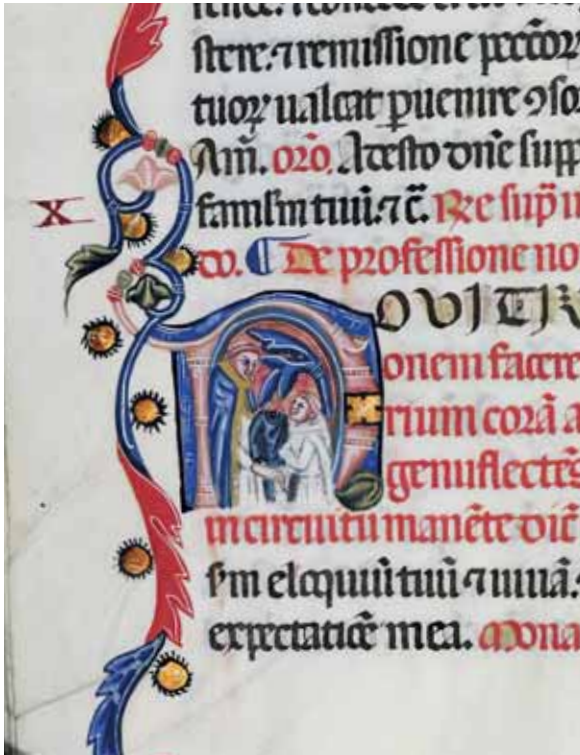 stere. ⁊ remissione pccõr
tuoꝝ ualeat ꝑuenire ꝯso
Am̃. orõ. Adesto dñe supp
famlm̃ tuũ. ⁊ c̃. Re sup̃
X
do. ¶ De professione no
OUI
onem facere
rium corã a
genuflectẽs
in circuitu manẽte dic̃
s̃m eloquiũ tuũ ⁊ uiuã.
expectatiõe mea. Mona